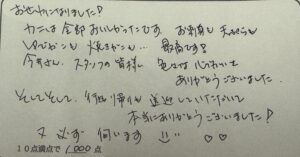 お世わになりました!
カニは全部おいしかったです お刺身も 天ぷらも
ゆでがにも 焼きがにも… 最高です!
今井さん、スタッフの皆様に 色々な 心づかいを
ありがとうございました
そしてそして、行き帰りも 送迎していただいて
本当にありがとうございました!
又 必ず 伺います
10点満点で 1,000 点